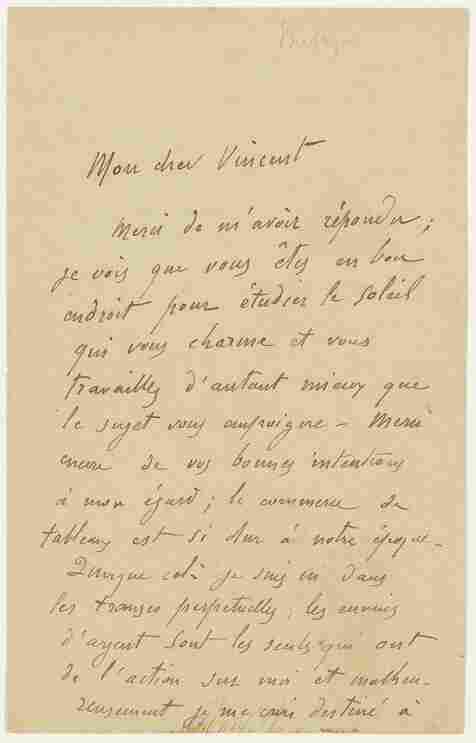 Mon cher Vincent
Merci de m'avoir répondu;
je vois que vous êtes en bon
endroit pour étudier le soleil
qui vous charme et vous
travaillez d'autant mieux que
le sujet vous empoigne - Merci
encore de vos bonnes intentions
à mon égard; le commerce de
tableaux est si dur à notre époque -
Quoique cela je suis en dans
les transes perpetuelles, les ennuis
d'argent sont les seuls qui ont
de l'action sur moi et malheu-
reusement je me crois destiné à